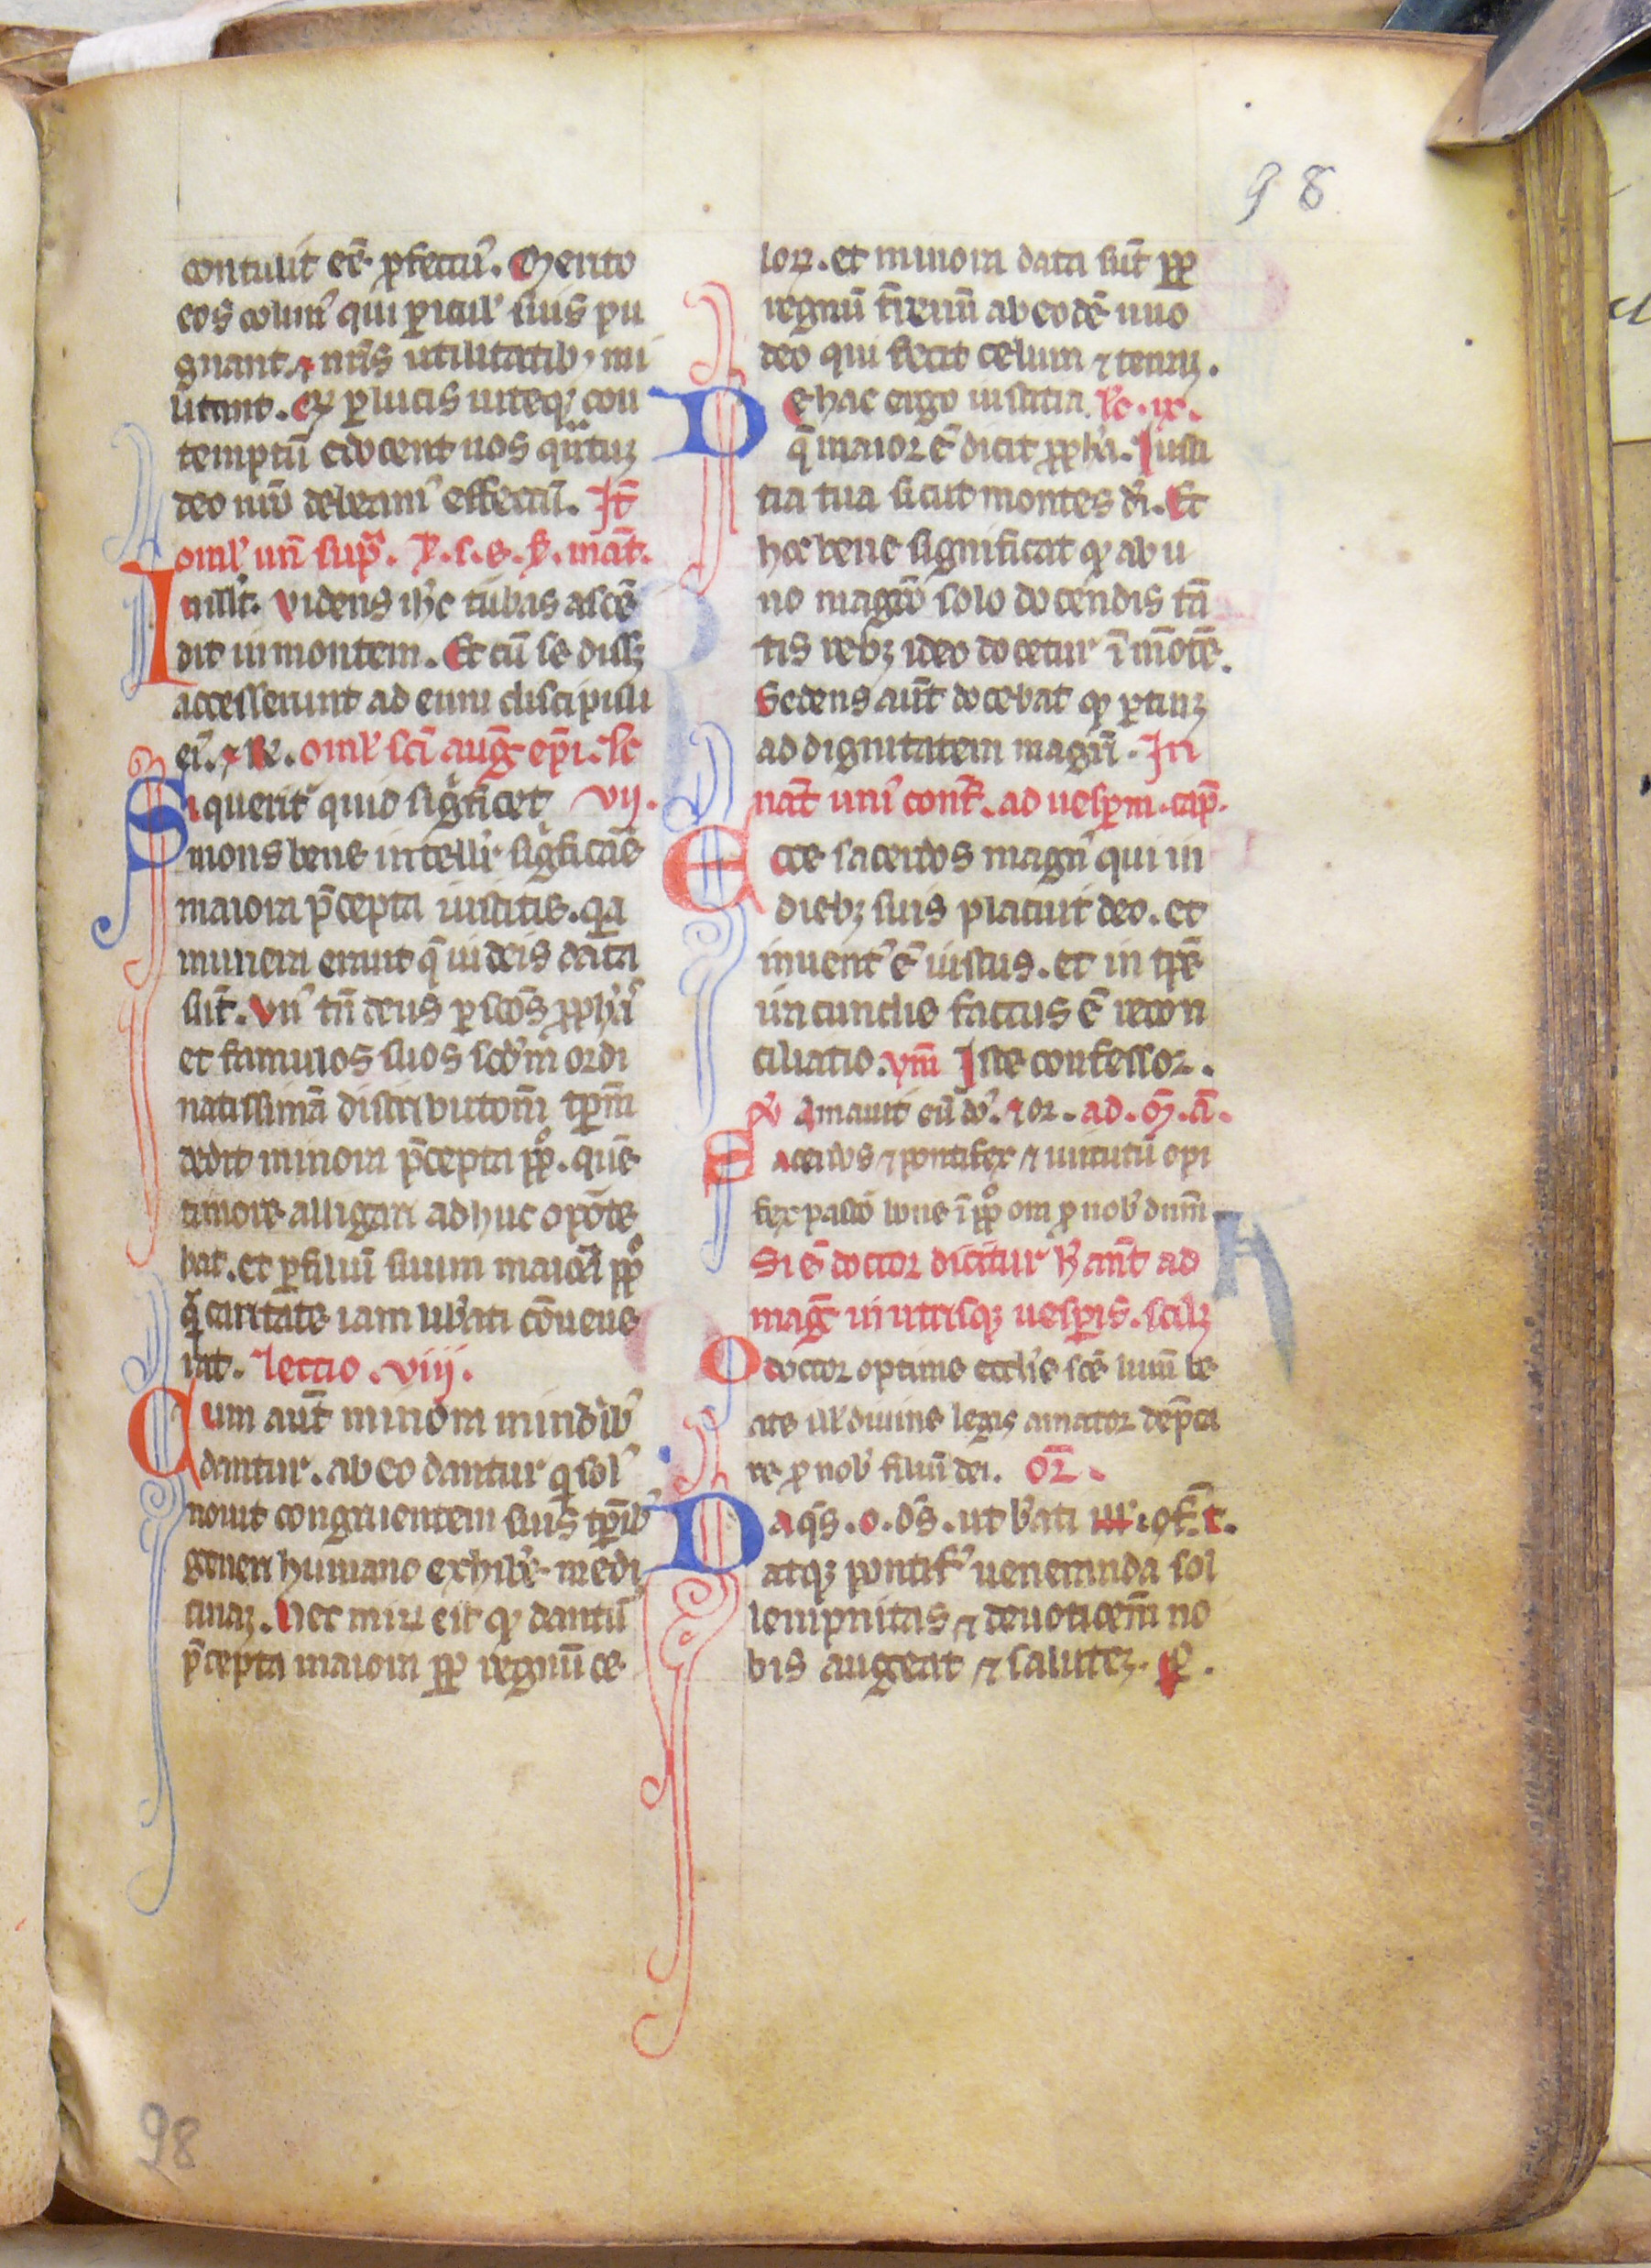 98
contulit eē ꝓfectū. Merito
eos colim᷒ qui ꝑicul᷒ suis pu
gnant ⁊ nr̄is utilitatib᷒ mi
litant.
temptū edocent nos
deo nr̄o debeam᷒ effectū. It̄
omel᷒ un̄ sup̄.
nillt. Videns ih̄c tūbas ascē
dit in montem. Et cū se diss₃
accesserunt ad eum discipuli
ei᷒. ⁊ R̄e. omel᷒ sc̄i aug᷒ ep̄i. lc̄
i querit᷒ quid sigͥficet vij.
mons bene intelli᷒ sigͥficāē
maiora p̄cepta iusticie. qͣa
minora erant q̄ iudeis data
sūt. Vn᷒ tn̄ deus ꝑ sc̄os ꝓph᷒as
et famulos suos scd̓m ordi
natissimā distributōm̄ tp̄m̄
dedit minora p̄cepta ꝓꝓͦ. quē
timore alligari adhuc opōte
bat. et ꝑ filiū suum maiora ꝓꝓͦ
q̄ caritate iam lib᷒ari cōvene
rat. lectio. viij.
Cum aut̄ minora minorib᷒
dantur. ab eo dantur q̇ sol᷒
novit congruentem suis tp̄ib᷒
generi humano exhib᷒e medi
cinaꝫ. Nec miꝝ est qꝫ dantu᷒
p̄cepta maiora ꝓꝓ regnū ce
loꝝ. et minora data sūt ꝓꝓ
regnū t̄renū ab eodē uno
deo qui fecit celum ⁊ terraꝫ.
De hac ergo iusticia lc̄. ix.
q̄ maior ē dicit ꝓph᷒a. Iusti
tia tua sicut montes dī. Et
hoc bene significat qꝫ ab u
no mag̅r̅o solo docendis tā
tis rebꝫ ideo docetur ī mōte.
Sedens aut̄ docebat qꝫ ꝑtinꝫ
ad dignitatem magr̄i. In
nat̄ uni᷒ conf̄. ad vesp̄m. cap̄.
Ecce sacerdos magn᷒ qui in
diebꝫ suis placuit deo. et
invent᷒ ē iustus. et in tp̄e
iracundie factus ē recon
ciliatio. ym̄ Iste confessor.
℣ Amavit eū do᷒. ⁊ or. ad. M̄. ā.
Sacerdos ⁊ pontifex ⁊ virtutū opi
fex pastor bone ī ꝓꝓͦ ora ꝓ nob᷒ dn̄m
Si ē doctor dicitur h̄ ant̄ ad
mag̅ in utrisqꝫ vesꝑis. scilꝫ
O doctor optime eccl᷒ie sc̄e lumē be
ate ill᷒ divine legis amator dep̄ca
re ꝓ nob᷒ filiū dei. Or̄.
Da q̄s. o. d̄s. ut b᷒ati ill᷒. ꝯf. t.
atqꝫ pontif᷒ veneranda sol
lempnitas ⁊ devotiōem no
bis augeat ⁊ saluteꝫ. ꝑ.
98